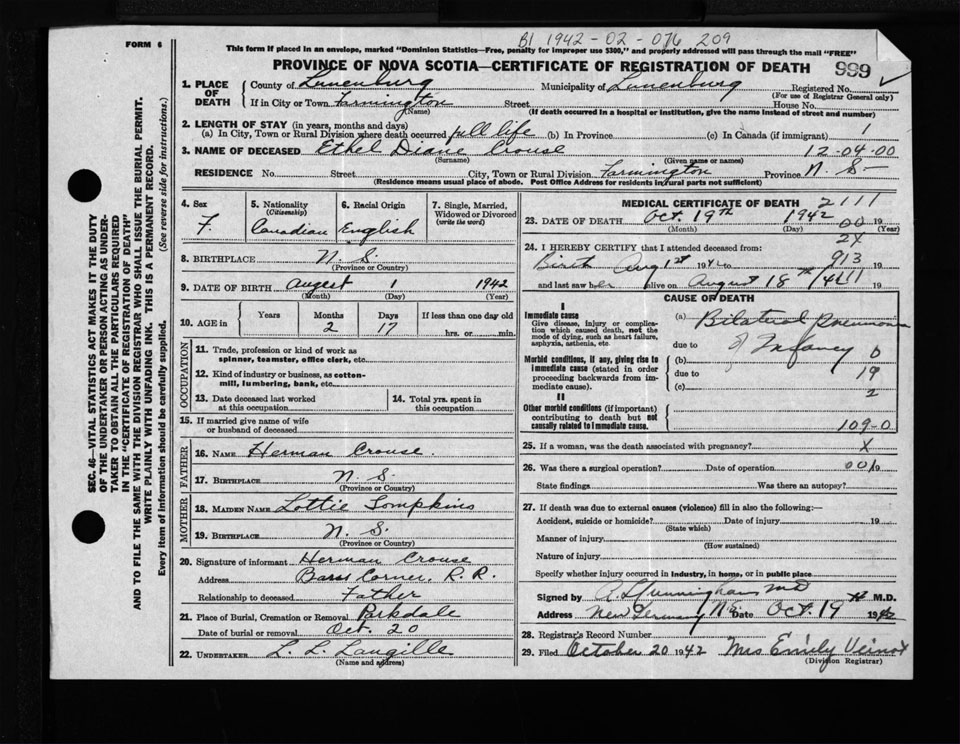 BI 1942-02-076 209
FORM 6
This form if placed in an envelope, marked "Dominion Statistics—Free, penalty for improper use $300," and properly addressed will pass through the mail "FREE"
PROVINCE OF NOVA SCOTIA—CERTIFICATE OF REGISTRATION OF DEATH 999
1. PLACE OF DEATH County of Lunenburg Municipality of Lunenburg Registered No.
(For use of Registrar General only)
If in City or Town Farmington Street House No.
(Name) (If death occurred in a hospital or institution, give the name instead of street and number)
2. LENGTH OF STAY (in years, months and days)
(a) In City, Town or Rural Division where death occurred full life (b) In Province (c) In Canada (if immigrant) 1
3. NAME OF DECEASED Ethel Diane Crouse 12-04-00
(Surname) (Given name or names)
RESIDENCE No. Street City, Town or Rural Division Farmington Province N. S.
(Residence means usual place of abode. Post Office Address for residents in rural parts not sufficient)
4. Sex F.
5. Nationality (Citizenship) Canadian
6. Racial Origin English
7. Single, Married, Widowed or Divorced (write the word)
8. BIRTHPLACE N. S.
(Province or Country)
9. DATE OF BIRTH August 1 1942
(Month) (Day) (Year)
10. AGE in Years Months 2 Days 17 If less than one day old hrs. or min.
OCCUPATION
11. Trade, profession or kind of work as spinner, teamster, office clerk, etc.
12. Kind of industry or business, as cotton-mill, lumbering, bank, etc.
13. Date deceased last worked at this occupation
14. Total yrs. spent in this occupation
15. If married give name of wife or husband of deceased
FATHER
16. NAME Herman Crouse.
17. BIRTHPLACE N. S.
(Province or Country)
MOTHER
18. MAIDEN NAME Lottie Tompkins
19. BIRTHPLACE N. S.
(Province or Country)
20. Signature of informant Herman Crouse
Address Barss Corner, R. R.
Relationship to deceased Father
21. Place of Burial, Cremation or Removal Parkdale
Date of burial or removal Oct. 20
22. UNDERTAKER L. L. Langille
(Name and address)
MEDICAL CERTIFICATE OF DEATH 2111
23. DATE OF DEATH Oct. 19th 1942
(Month) (Day) 00 19
24. I HEREBY CERTIFY that I attended deceased from: 24
Birth Aug 1st 1942 to 913 19
and last saw her alive on August 18th 1942 19
CAUSE OF DEATH
I
Immediate cause
Give disease, injury or complication which caused death, not the mode of dying, such as heart failure, asphyxia, asthenia, etc.
(a) Bilateral Pneumonia
due to
Morbid conditions, if any, giving rise to immediate cause (stated in order proceeding backwards from immediate cause).
(b) of Infancy 0
due to 19
(c) 2
II
Other morbid conditions (if important) contributing to death but not causally related to immediate cause.
109-0
25. If a woman, was the death associated with pregnancy? X
26. Was there a surgical operation? Date of operation 00 19
State findings Was there an autopsy?
27. If death was due to external causes (violence) fill in also the following:—
Accident, suicide or homicide? Date of injury 19
(State which)
Manner of injury
(How sustained)
Nature of injury
Specify whether injury occurred in industry, in home, or in public place
Signed by Cunningham MD M.D.
Address New Germany NS Date Oct. 19 1942
28. Registrar's Record Number
29. Filed October 20 1942 Mrs Emily Veinot
(Division Registrar)
SEC. 46—VITAL STATISTICS ACT MAKES IT THE DUTY
OF THE UNDERTAKER OR PERSON ACTING AS UNDER-
TAKER TO OBTAIN ALL THE PARTICULARS REQUIRED
IN THE "CERTIFICATE OF REGISTRATION OF DEATH"
AND TO FILE THE SAME WITH THE DIVISION REGISTRAR WHO SHALL ISSUE THE BURIAL PERMIT.
WRITE PLAINLY WITH UNFADING INK. THIS IS A PERMANENT RECORD.
Every item of information should be carefully supplied. (See reverse side for instructions.)